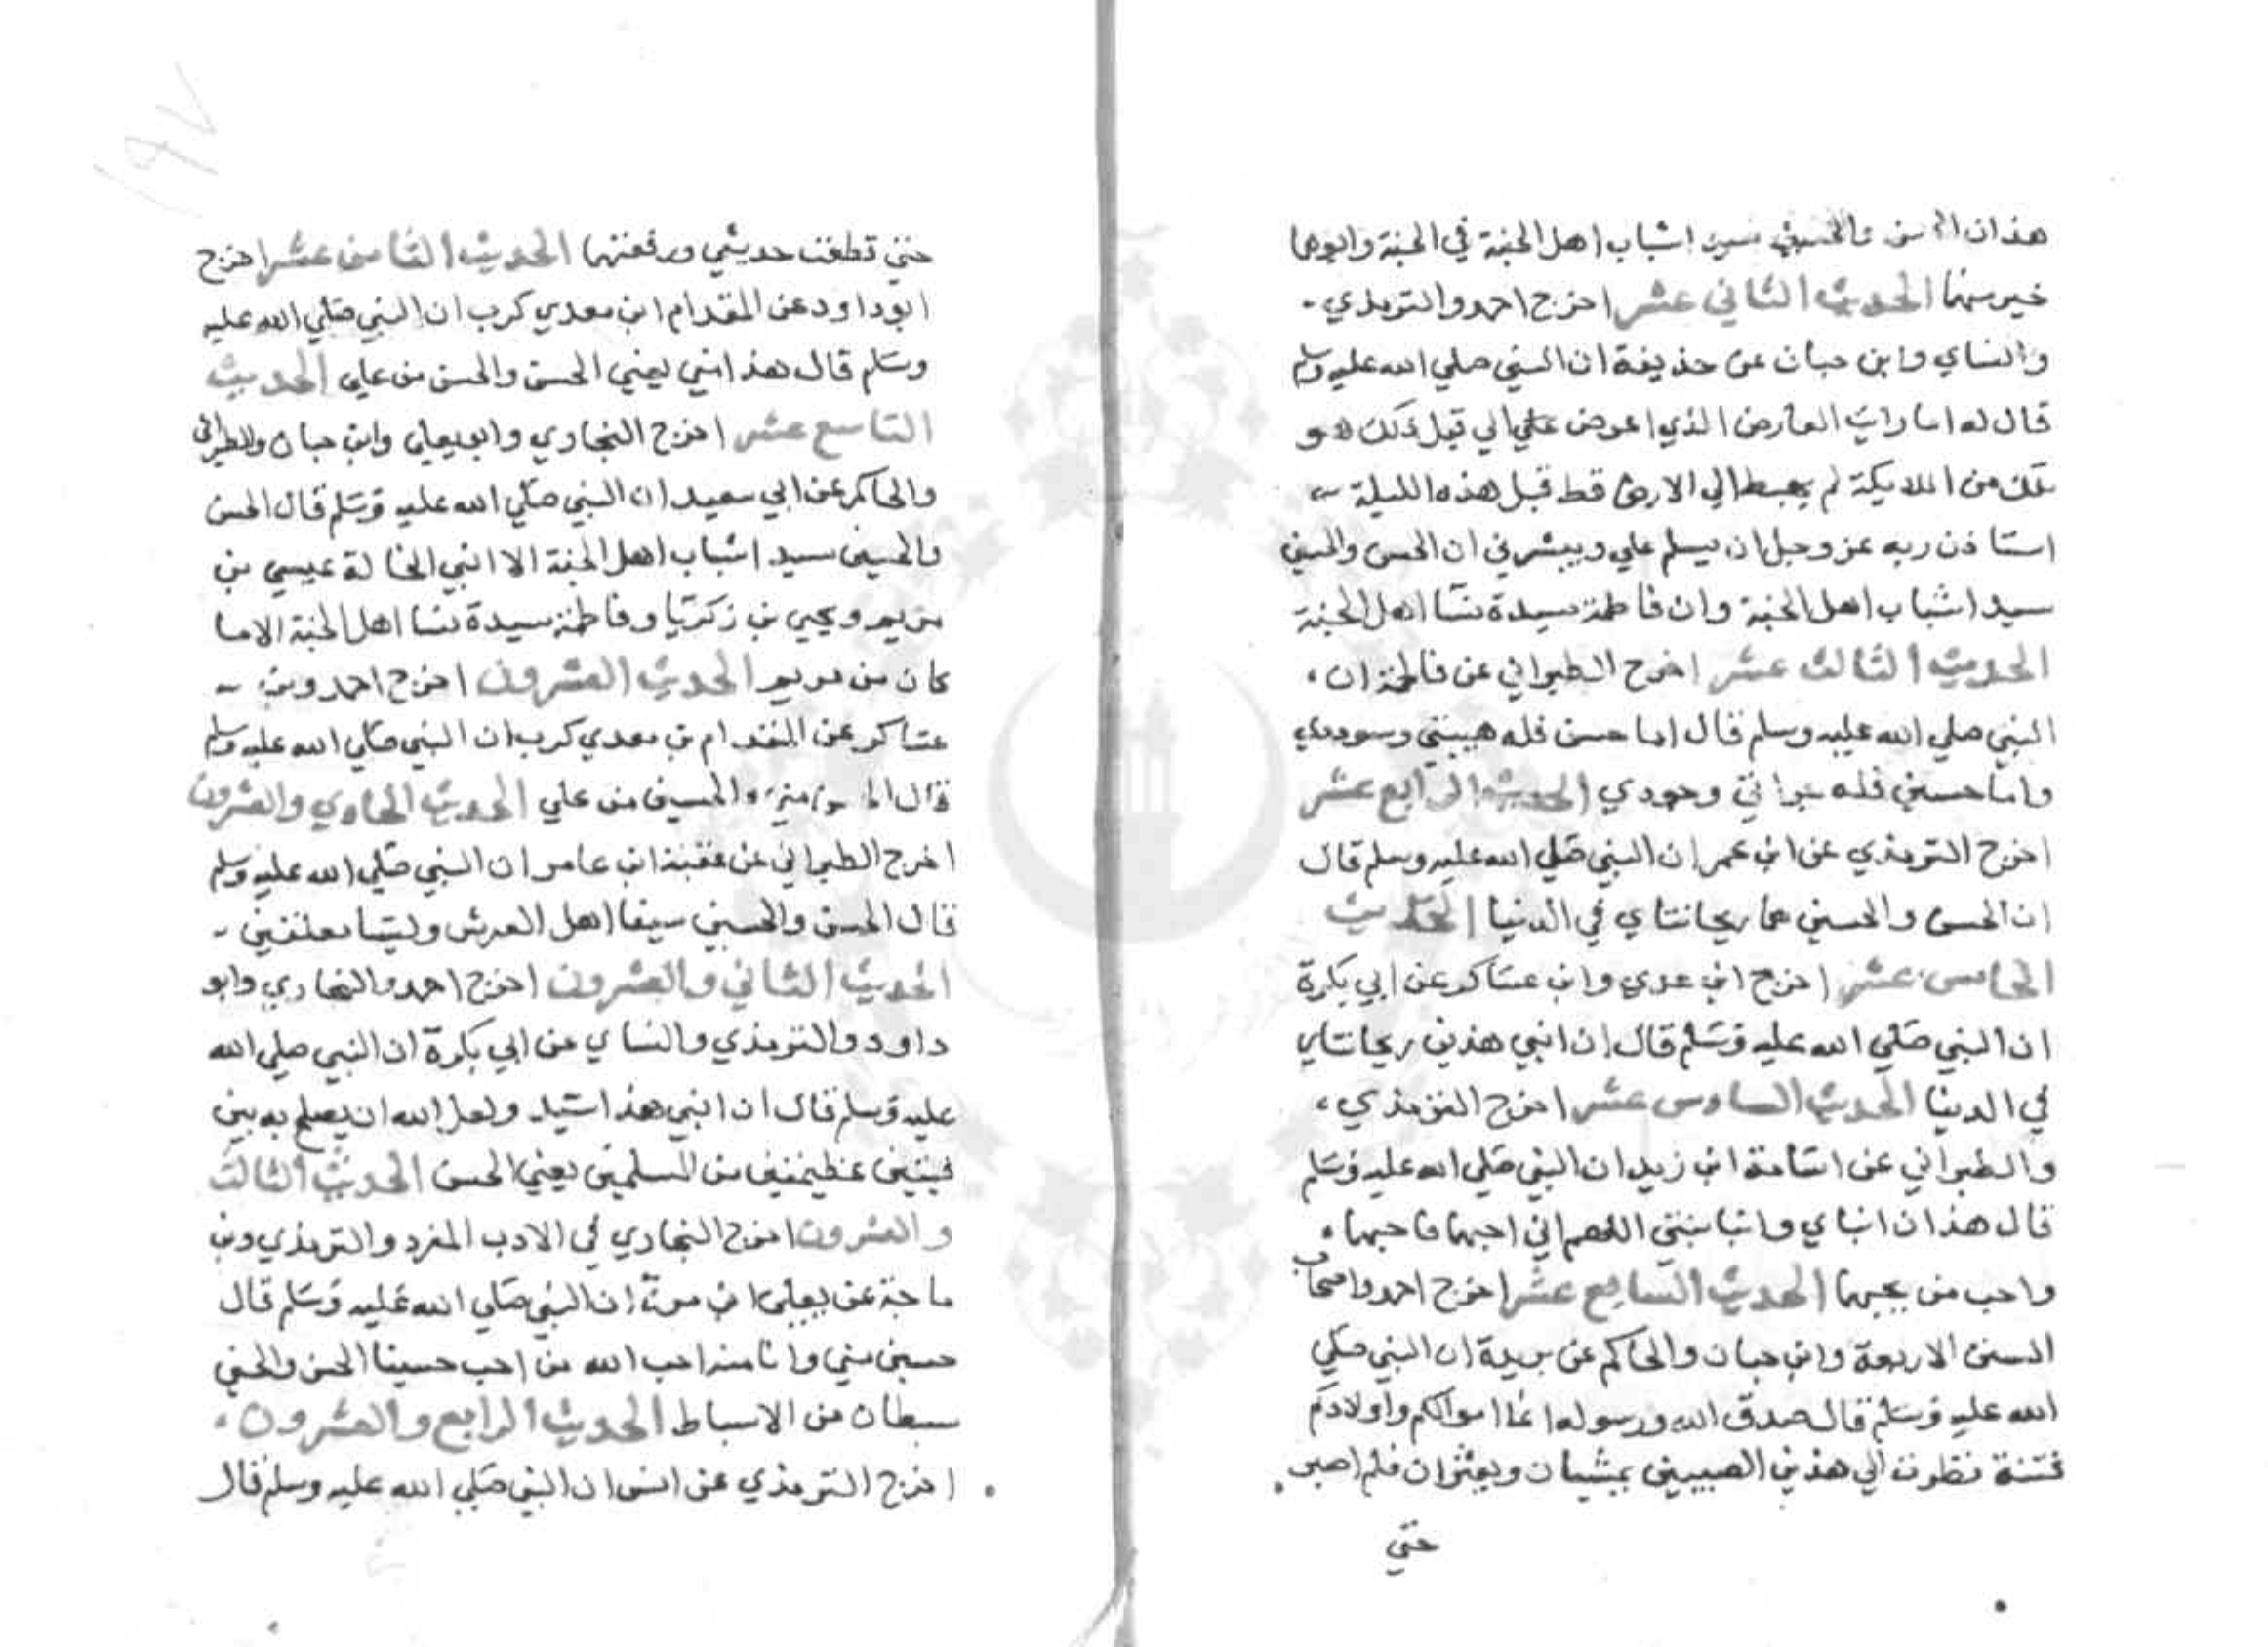 هذان الحسن والحسين سيدا شباب اهل الجنة في الجنة وابوهما
خير منهما الحديث الثاني عشر اخرج احمد والترمذي
والنساي وابن حبان عن حذيفة ان النبي صلي الله عليه وسلم
قال له اما رايت العارض الذي اعرض علي الي قبل ذلك هو
ملك من الملايكة لم يهبط الي الارض قط قبل هذه الليلة
استاذن ربه عز وجل ان يسلم علي ويبشرني ان الحسن والحسين
سيدا شباب اهل الجنة وان فاطمة سيدة نسا اهل الجنة
الحديث الثالث عشر اخرج الطبراني عن فاطمة ان
النبي صلي الله عليه وسلم قال اما حسن فله هيبتي وسوددي
واما حسين فله جراتي وجودي الحديث الرابع عشر
اخرج الترمذي عن ابن عمر ان النبي صلي الله عليه وسلم قال
ان الحسن والحسين هما ريحانتاي في الدنيا الحديث
الخامس عشر اخرج ابن عدي وابن عساكر عن ابي بكرة
ان النبي صلي الله عليه وسلم قال ان ابني هذين ريحانتاي
في الدنيا الحديث السادس عشر اخرج الترمذي
والطبراني عن اسامة ابن زيد ان النبي صلي الله عليه وسلم
قال هذان ابناي وابنا بنتي اللهم اني احبهما فاحبهما
واحب من يحبهما الحديث السابع عشر اخرج احمد واصحاب
السنن الاربعة وابن حبان والحاكم عن بريدة ان النبي صلي
الله عليه وسلم قال صدق الله ورسوله انما اموالكم واولادكم
فتنة نظرت الي هذين الصبيين يمشيان ويعثران فلم اصبر
حتي
حتي قطعت حديثي ورفعتهما الحديث الثامن عشر اخرج
ابو داود عن المقدام ابن معدي كرب ان النبي صلي الله عليه
وسلم قال هذا مني يعني الحسن والحسن من علي الحديث
التاسع عشر اخرج البخاري وابو يعلي وابن حبان والطبراني
والحاكم عن ابي سعيد ان النبي صلي الله عليه وسلم قال الحسن
والحسين سيدا شباب اهل الجنة الا ابني الخالة عيسي بن
مريم ويحيي بن زكريا وفاطمة سيدة نسا اهل الجنة الا ما
كان من مريم الحديث العشرون اخرج احمد وبن
عساكر عن المقدام بن معدي كرب ان النبي صلي الله عليه وسلم
قال الحسن مني والحسين من علي الحديث الحادي والعشرون
اخرج الطبراني عن عقبة ابن عامر ان النبي صلي الله عليه وسلم
قال الحسن والحسين سيفا اهل العرش وليسا معلقين
الحديث الثاني والعشرون اخرج احمد والبخاري وابو
داود والترمذي والنساي عن ابي بكرة ان النبي صلي الله
عليه وسلم قال ان ابني هذا سيد ولعل الله ان يصلح به بين
فيتين عظيمتين من المسلمين يعني الحسن الحديث الثالث
والعشرون اخرج البخاري في الادب المفرد والترمذي وبن
ماجة عن يعلي ابن مرة ان النبي صلي الله عليه وسلم قال
حسين مني وانا منه احب الله من احب حسينا الحسن والحسين
سبطان من الاسباط الحديث الرابع والعشرون
اخرج الترمذي عن انس ان النبي صلي الله عليه وسلم قال